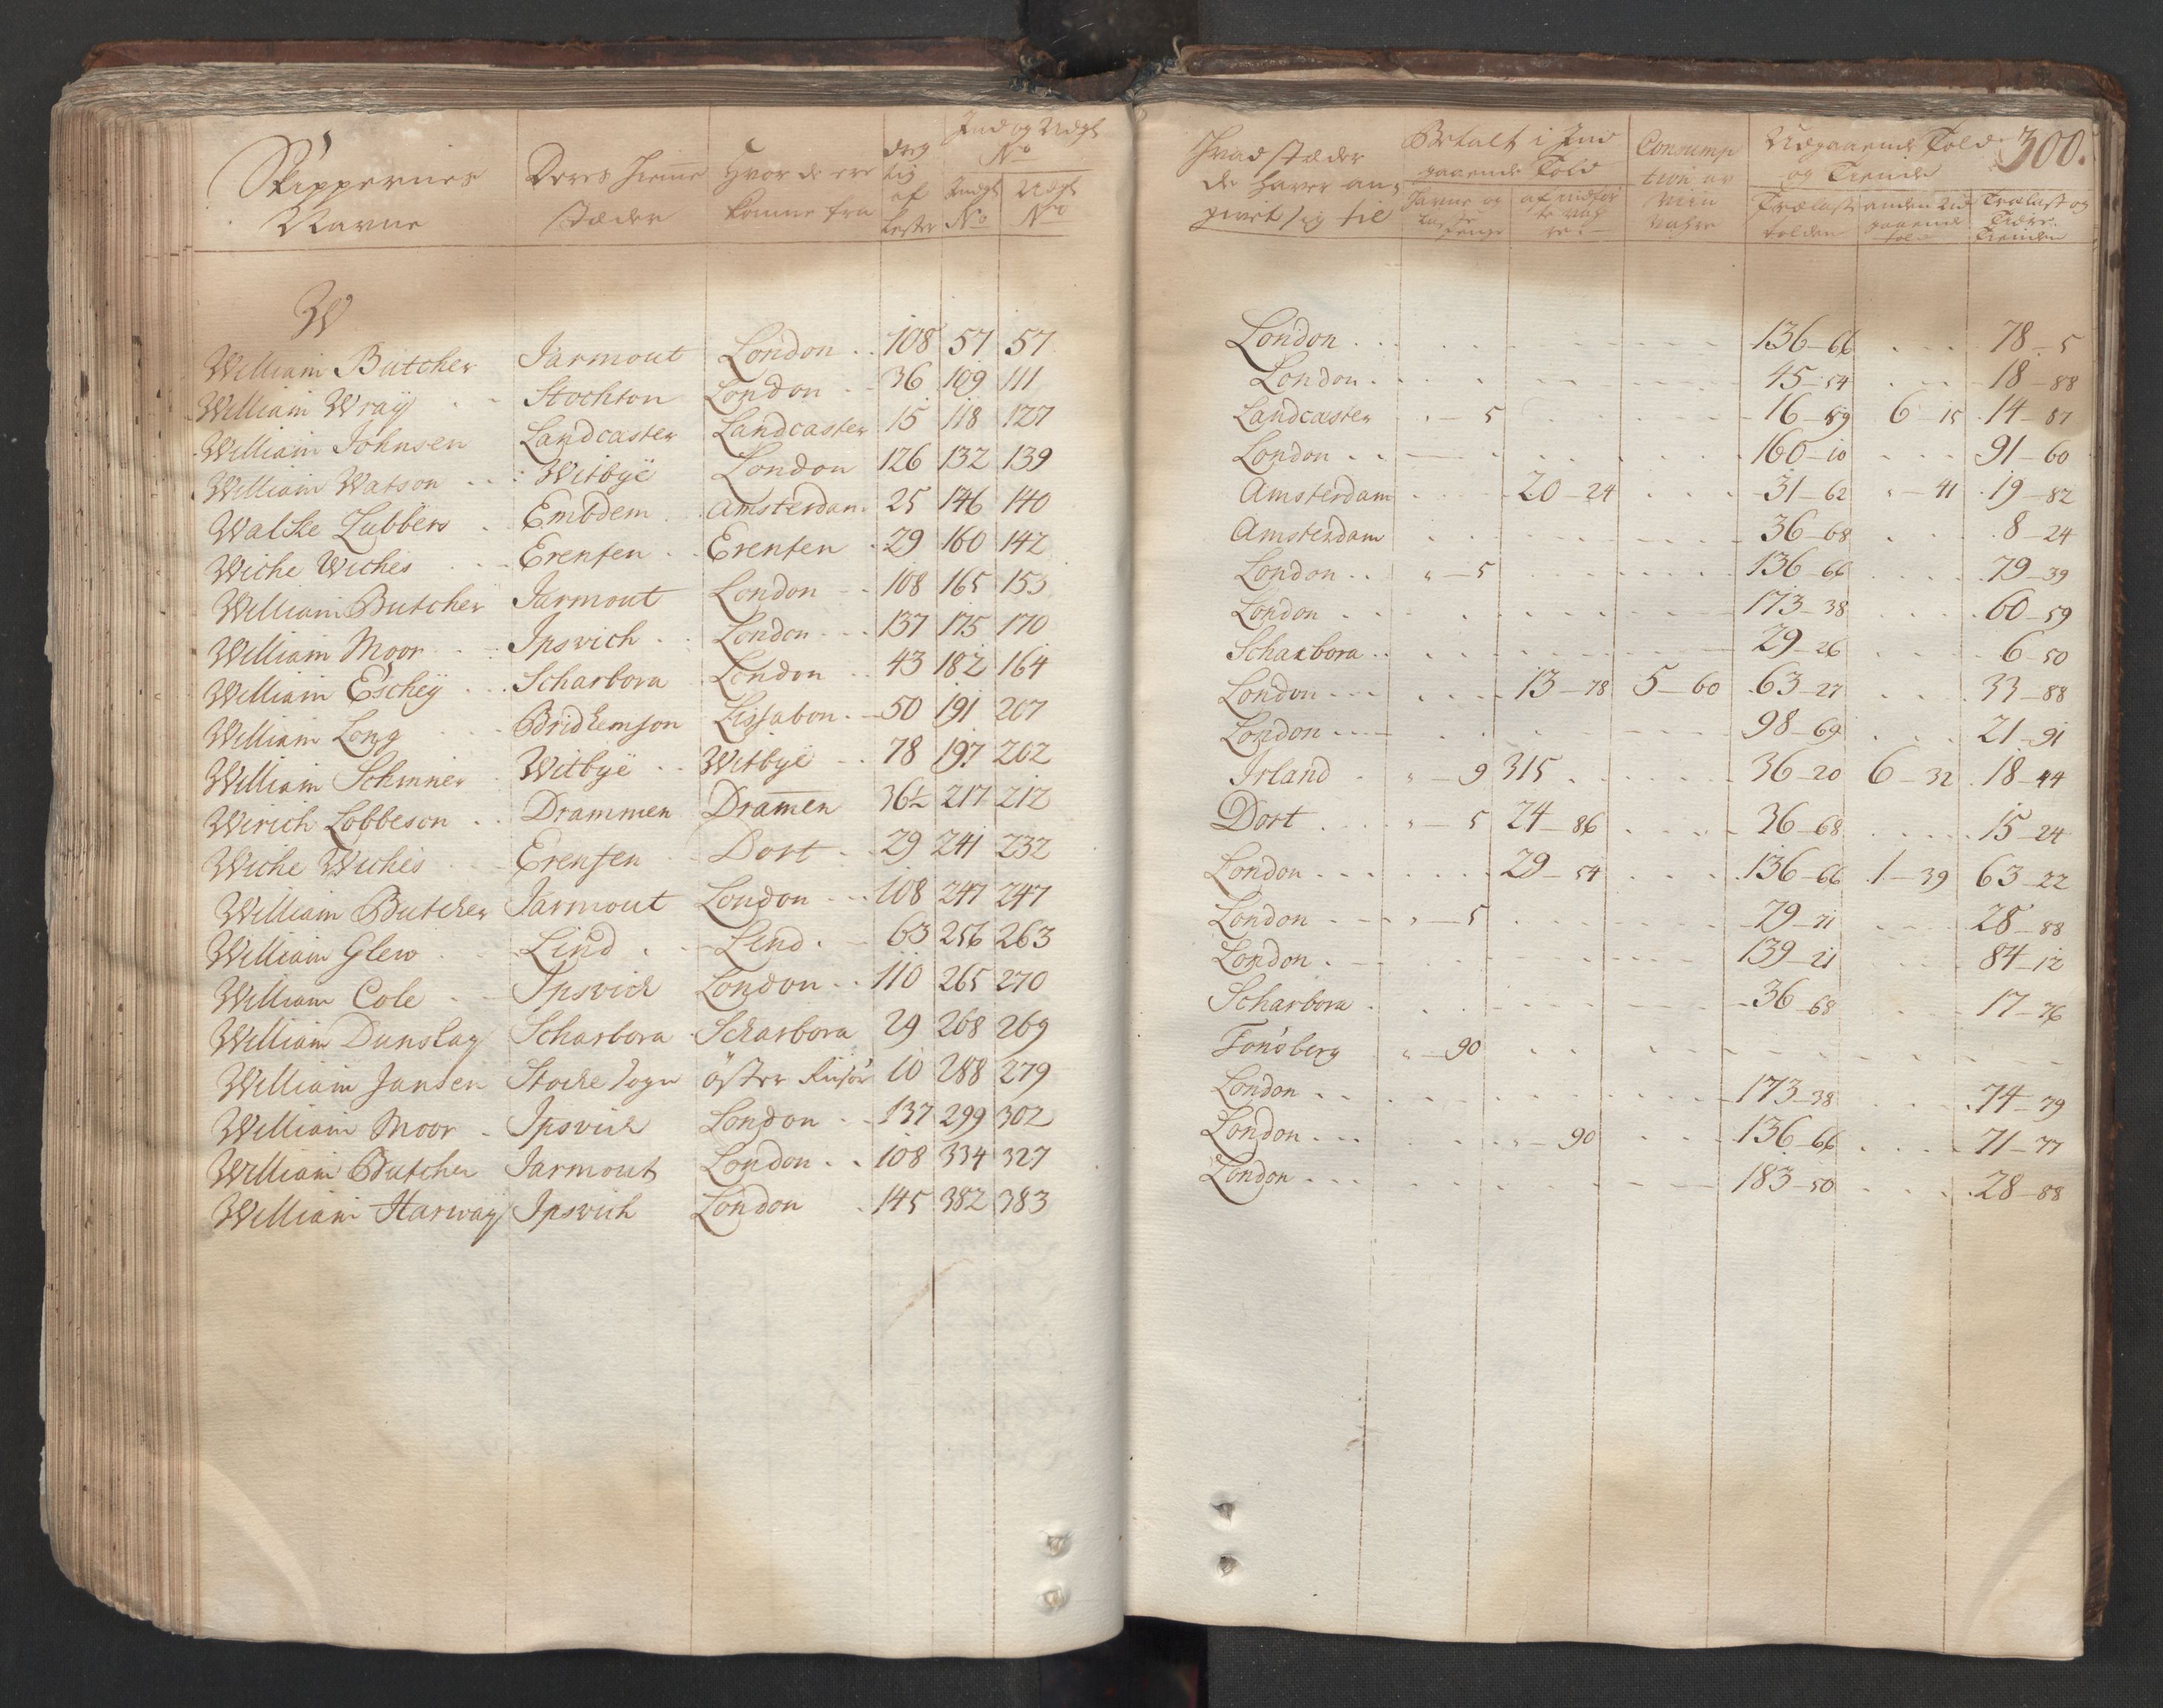 Skippernes Navne | Deres Hiemme stæder | Hvor de ere komne fra | dreg tig af Lester | Ind og Udgt No | Indgt No | Udgt No
W
William Butcher | Jarmout | London | 108 | 57 | 57
William Wraÿ | Stochton | London | 36 | 109 | 111
William Johnsen | Landcaster | Landcaster | 15 | 118 | 127
William Watson | Witbye | London | 126 | 132 | 139
Walcke Lubbers | Embdem | Amsterdam | 25 | 146 | 140
Wiche Wiches | Erensen | Erensen | 29 | 160 | 142
William Butcher | Jarmout | London | 108 | 165 | 153
William Moor | Ipsvich | London | 137 | 175 | 170
William Eschey | Scharbora | London | 43 | 182 | 164
William Long | Bridlemson | Lissabon | 50 | 191 | 207
William Schinner | Witbye | Witbye | 78 | 197 | 202
Wirich Lobbeson | Drammen | Dramen | 36½ | 217 | 212
Wiche Wiches | Erensen | Dort | 29 | 241 | 232
William Butcher | Jarmout | London | 108 | 247 | 247
William Glew | Lind | Lend | 63 | 256 | 263
William Cole | Ipsvich | London | 110 | 265 | 270
William Dunslay | Scharbora | Scharbora | 29 | 268 | 269
William Jansen | Stocke Sogn | öster Riisöer | 10 | 288 | 279
William Moor | Ipsvich | London | 137 | 299 | 302
William Butcher | Jarmout | London | 108 | 334 | 327
William Harway | Ipsvich | London | 145 | 382 | 383
300.
Hvad stæder de haver an givet sig til | Betalt i Ind gaaende Told | Consumption | Udgaaende Told og Tiende
af indfør te | Trælast tolden | anden Ud gaaende told | Trælast og Tiære Tienden
London | 136-66 | 78-5
London | 45-54 | 18-88
Landcaster | 5 | 16-59 | 6-15 | 14-87
London | 160-10 | 91-60
Amsterdam | 20-24 | 31-62 | "-41 | 19-82
Amsterdam | 36-68 | 8-24
London | "-5 | 136-66 | 79-39
London | 173-38 | 60-59
Scharbora | 29-26 | 6-50
London | 13-78 | 5-60 | 63-27 | 33-88
London | 98-69 | 21-91
Irland | "-9 | 315 | 36-20 | 6-32 | 18-44
Dort | "-5 | 24-86 | 36-68 | 15-24
London | 29-54 | 136-66 | 1-39 | 63-22
London | "-5 | 79-71 | 28-88
London | 139-21 | 84-12
Scharbora | 36-68 | 17-76
Tonsberg | "-90
London | 173-38 | 74-79
London | "-90 | 136-66 | 71-77
London | 183-50 | 28-88